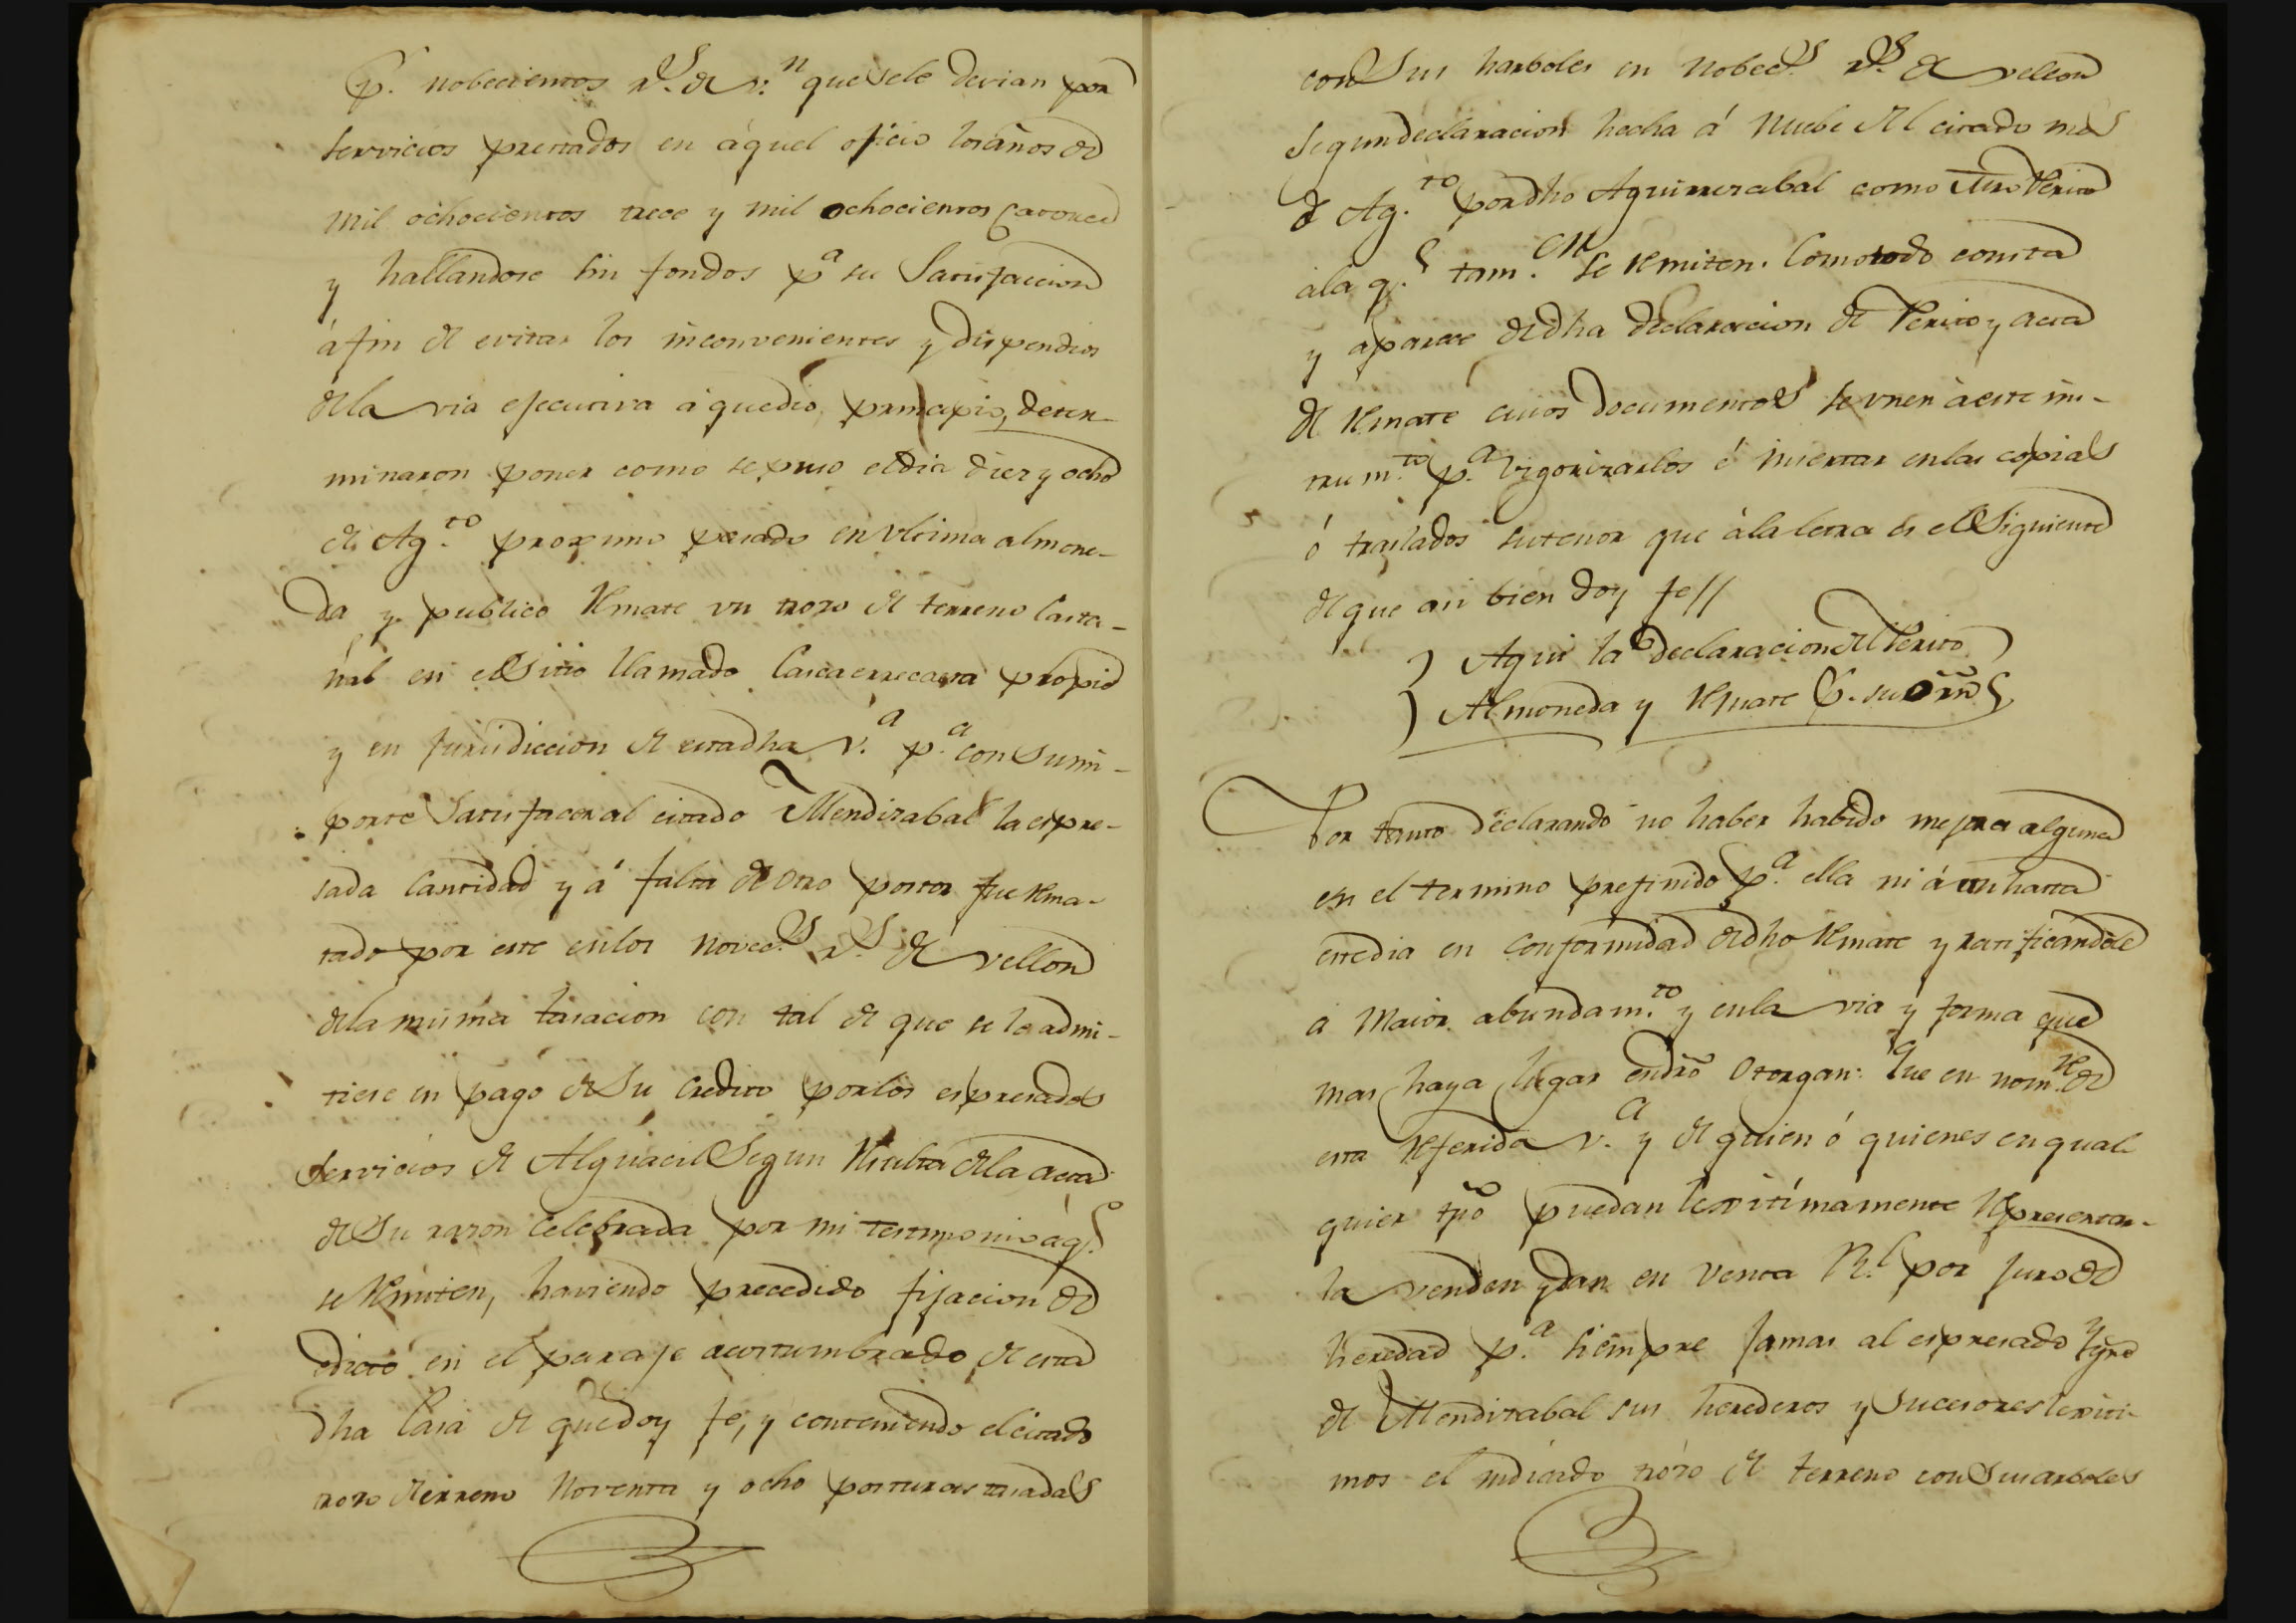 p.r nobecientos r.s de v.n que sele devian por
servicios prestados en aquel oficio los años de
mil ochocientos trece y mil ochocientos catorce
y hallandose sin fondos p.a su satisfaccion
á fin de evitar los inconvenientes y dispendios
dela via ejecutiva á que dio principio, deter-
minaron poner como se puso el dia diez y ocho
de Ag.to proximo pasado en ultima almone-
da y publico Remate un trozo de terreno Casta-
ñal en el Sitio llamado propio
y en Jurisdiccion de esta dha v.a p.a con su im-
porte Satisfacer al citado Mendizabal la espre-
sada Cantidad y á falta de otro postor fue Rema-
tado por este en los novec.s r.s de vellon
dela misma tasacion con tal de que se le admi-
tiese en pago de su Credito por los espresados
servicios de Alguacil Segun Resulta dela acta
de Su razon celebrada por mi testimonio á q.e
se Remiten, haviendo precedido fijacion de
edicto en el paraje acostumbrado de esta
dha Casa de que doy fe, y conteniendo el citado
trozo de terreno Noventa y ocho posturas tasadas
con Sus harboles en Nobec.s r.s de vellon
Segun declaracion hecha á Nuebe del citado mes
de Ag.to por dho Aguirrezabal como Mro Perito
ála q.e tam.en se Remiten. Como todo consta
y aparece de dha declaracion de Perito y acta
de Remate cuios documentos se unen á este ins-
trum.to p.a vigorizarlos é insertar en las copias
ó traslados su tenor que á la letra es el Siguiente
de que asi bien doy fe//
Aqui la declaracion del Perito
Almoneda y Remate p.r su orñ
Por tanto declarando no haber habido mejora alguna
en el termino prefinido p.a ella ni áun hasta
este dia en conformidad de dho Remate y ratificandole
á Maior abundam.to y en la via y forma que
mas haya lugar en dro Otorgan: Que en nom.re de
esta Referida v.a y de quien ó quienes en qual-
quier tpo puedan lexitimamente Representar-
la venden y dan en Venta R.l por juro de
heredad p.a siempre Jamas al espresado Ygn.o
de Mendizabal sus herederos y Sucesores lexiti-
mos el indicado trozo de terreno con Sus arboles